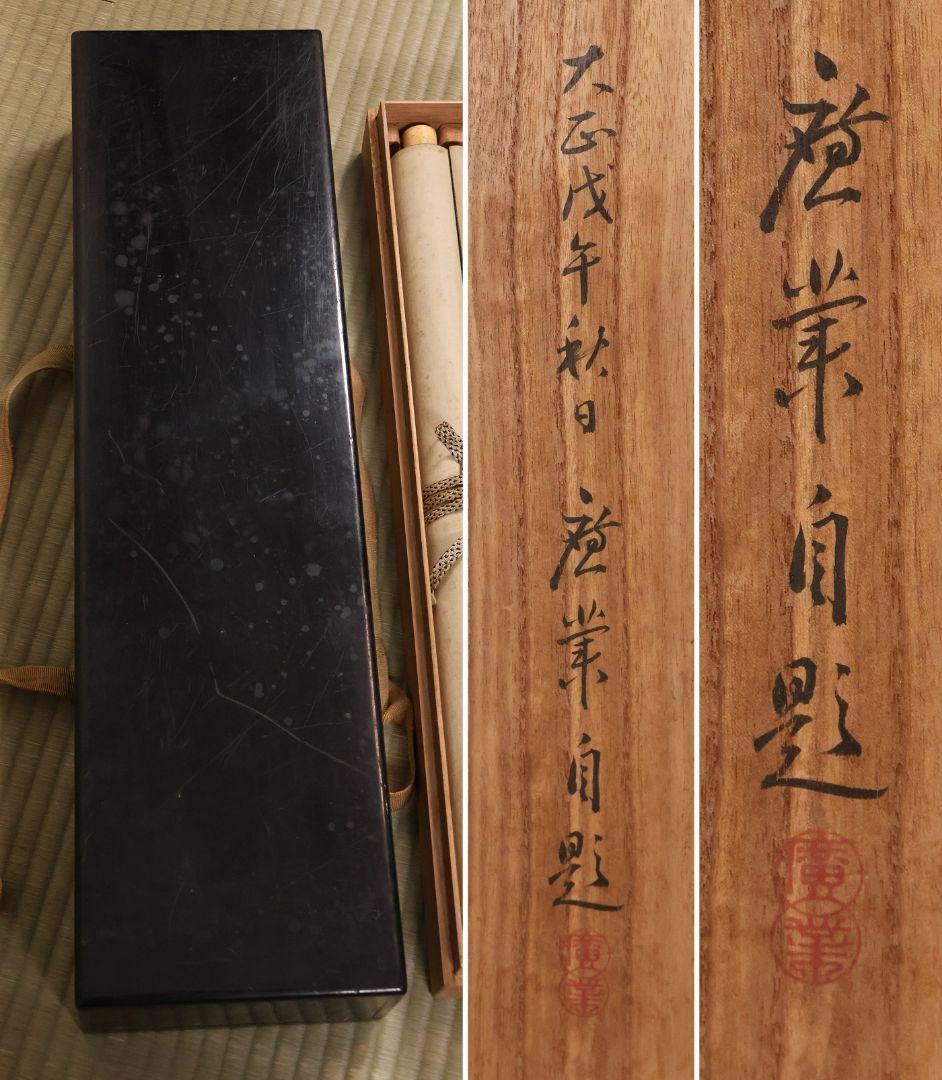 大正戊午秋日
廣業自題
廣業
廣業自題
廣業